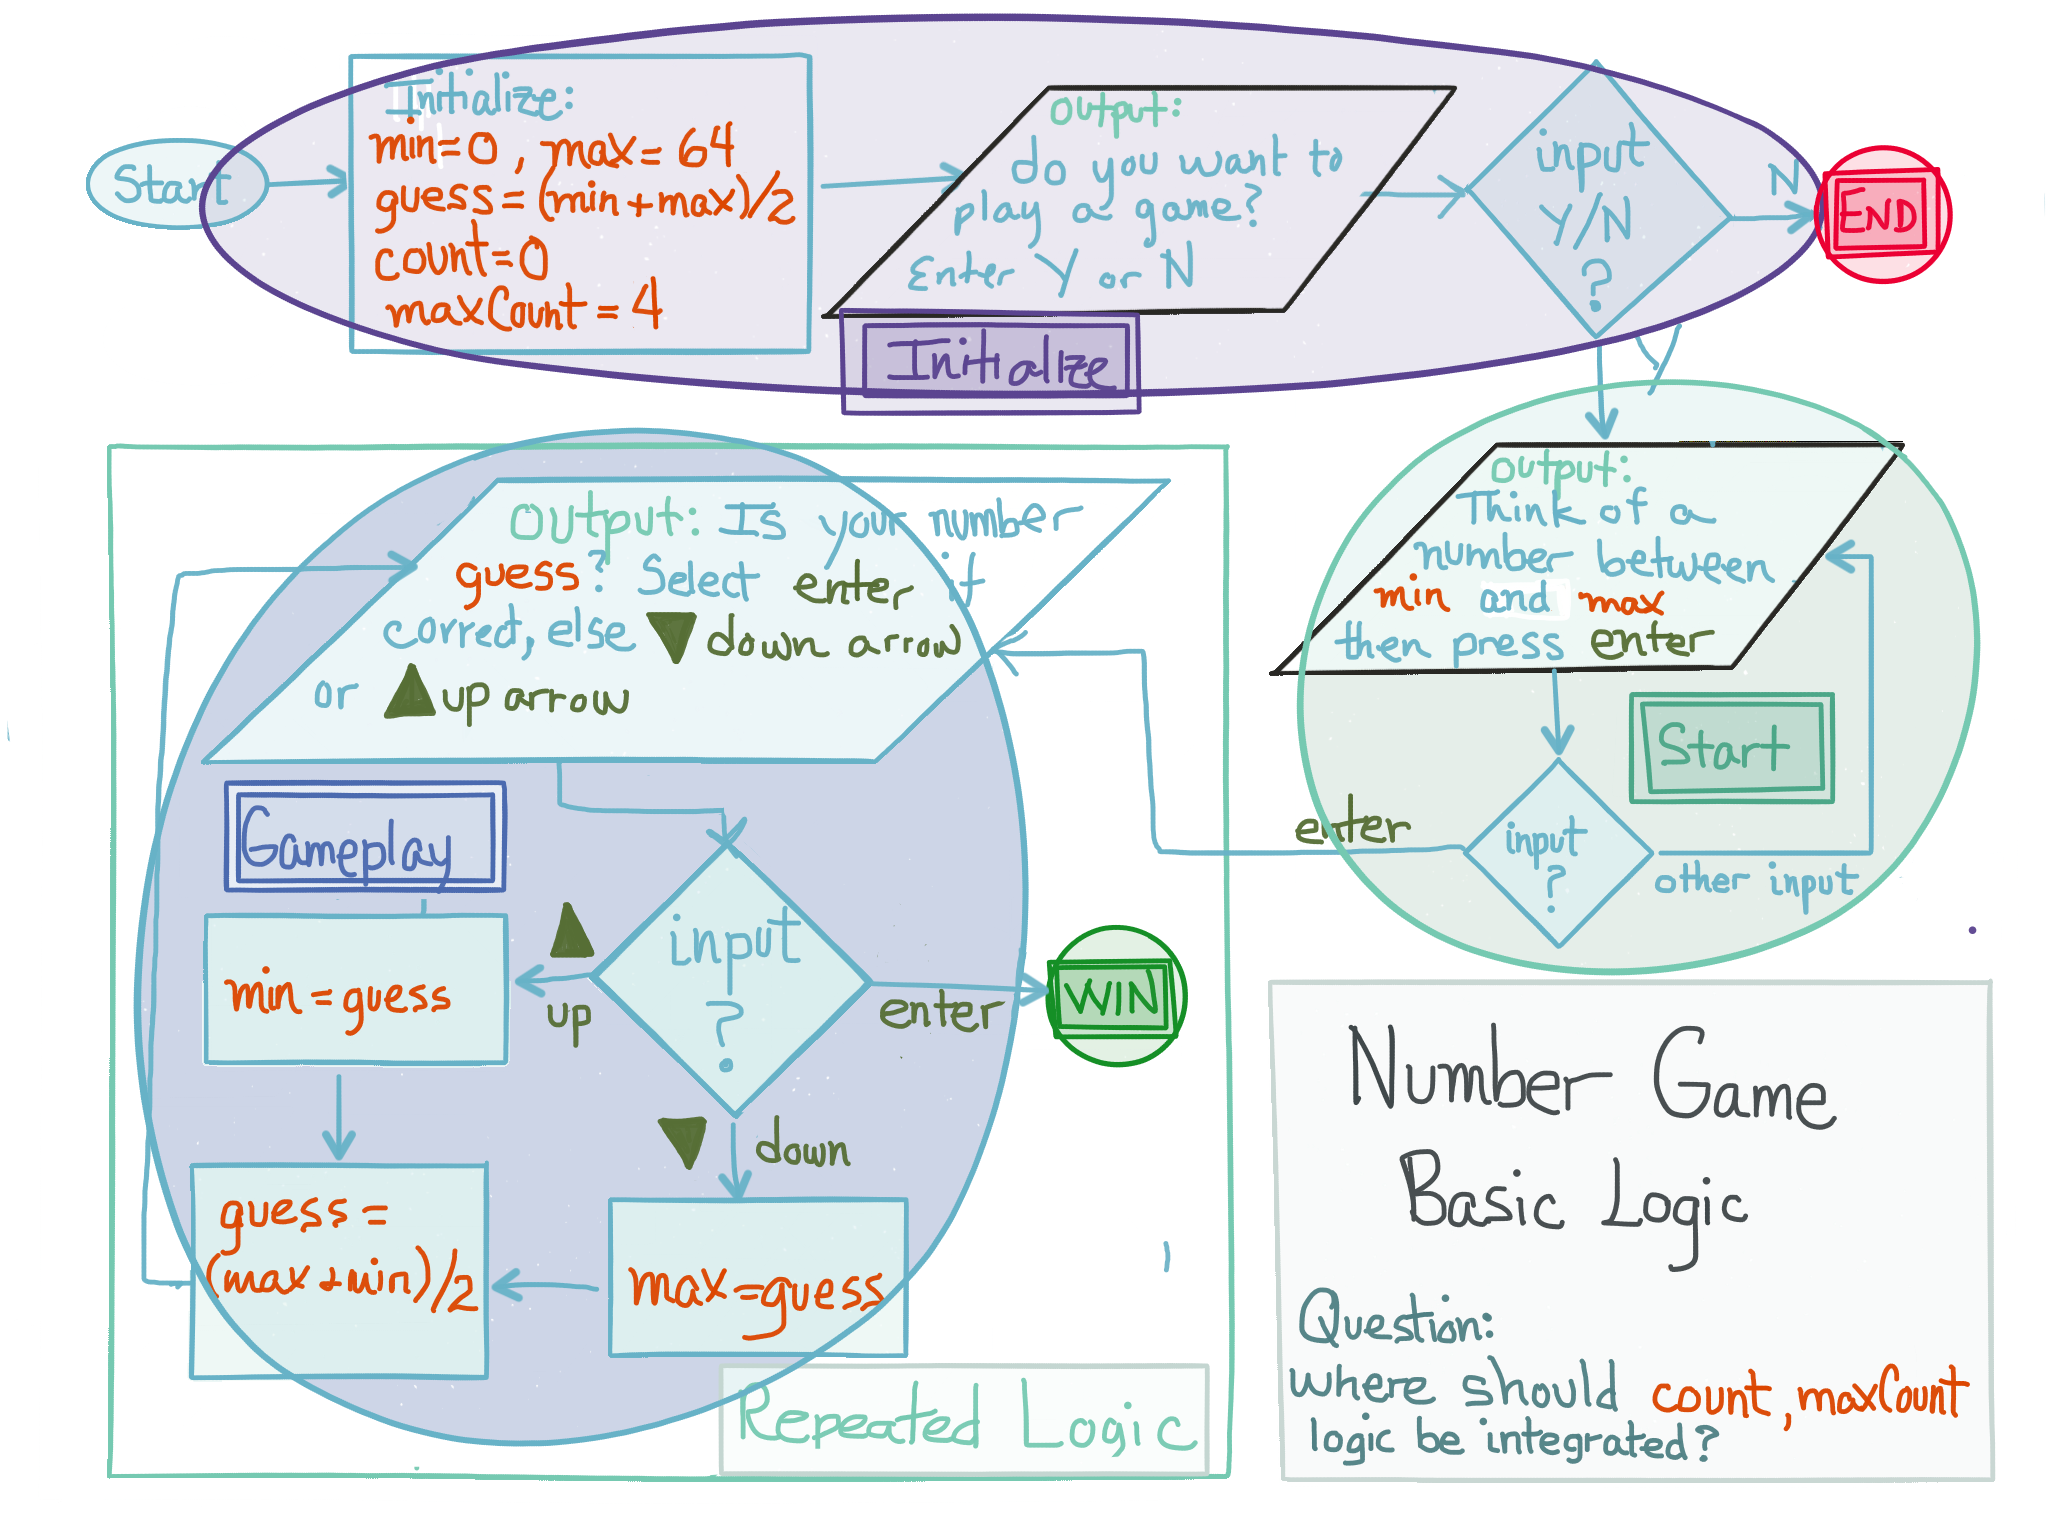 Start
Initialize:
min=0, max=64
guess=(min+max)/2
count=0
maxCount=4
output:
do you want to
play a game?
Enter Y or N
input
Y/N
?
N
END
Initialize
Y
output:
Think of a
number between
min and max
then press enter
Start
input
?
enter
other input
Output: Is your number
guess? Select enter if
correct, else ▼ down arrow
or ▲ up arrow
Gameplay
input
?
▲
up
enter
WIN
min=guess
▼ down
guess=
(max+min)/2
max=guess
Repeated Logic
Number Game
Basic Logic
Question:
where should count, maxCount
logic be integrated?